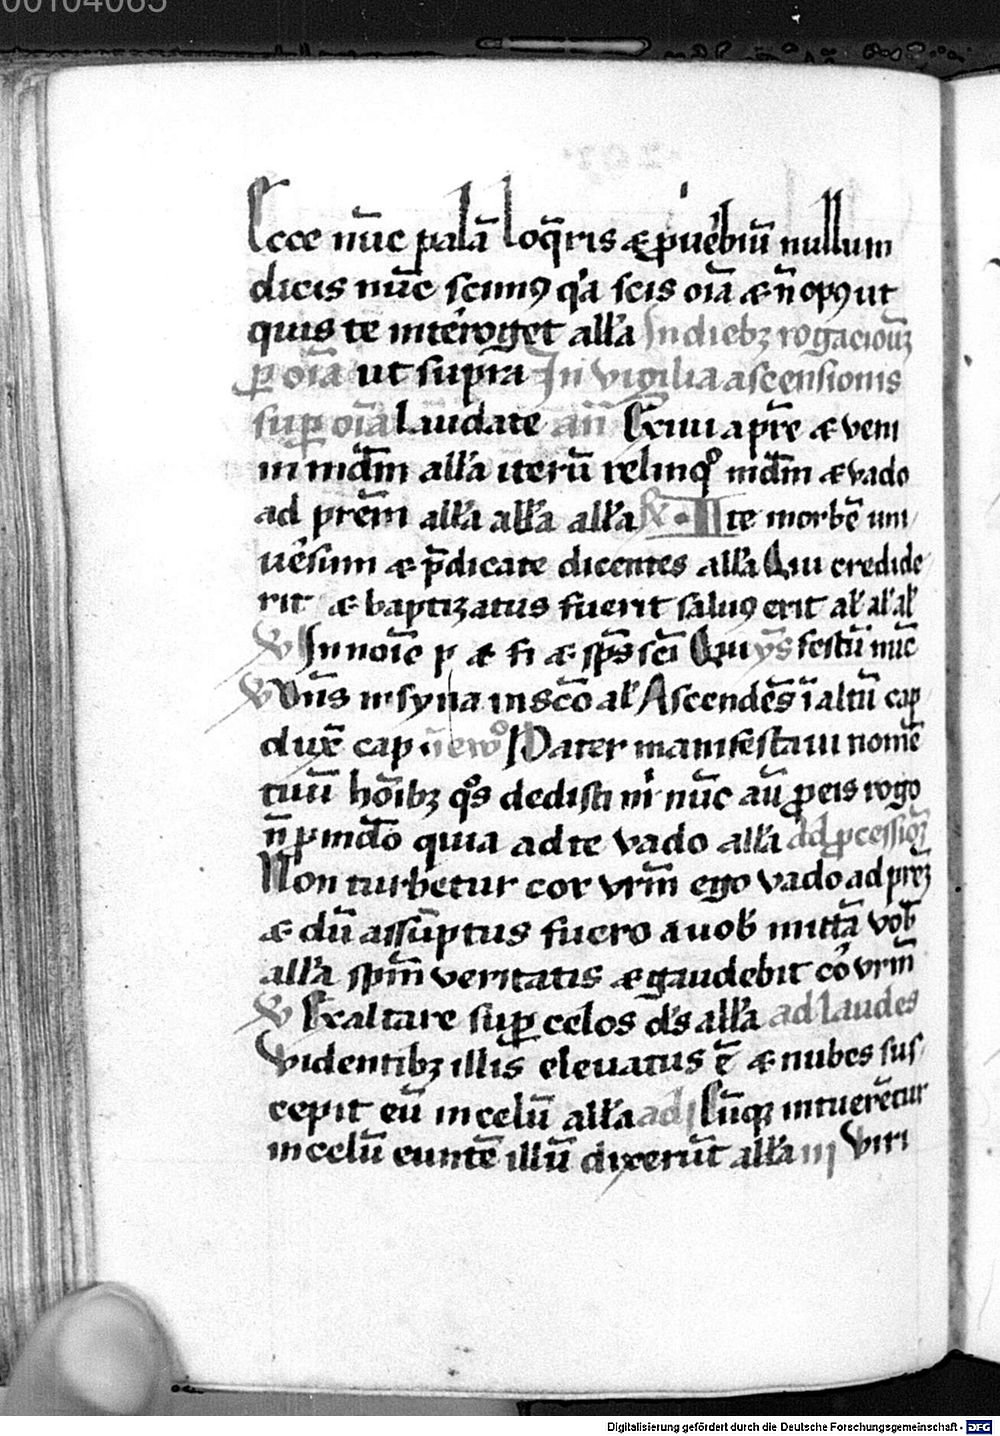 00104065
Ecce nūc palā loq̄ris ⁊ ꝓuēbiū nullum
dicis nūc scimꝰ q'a scis oīa ⁊ n̄ opꝰ ut
quis te intēroget all'a In diebꝫ rogacionū
ꝑ oīa ut supra In vigilia ascensionis
suꝑ oīa Laudate an̄ Exiui a pr̄e ⁊ veni
in mūdm all'a iterū relinqͦ mūdm ⁊ vado
ad prēm all'a all'a all'a ℟ Ite in orbē uni
uēsum ⁊ p̄dicate dicentes all'a Qui credide
rit ⁊ baptizatus fuerit saluꝰ erit al' al' al'
℣ In noīe p ⁊ fi ⁊ sps̄ sc̄i Qui ys festū nūc
℣ Dn̄s in syna in sc̄o al' Ascendēs ī altū cap
duxē cap Pater manifestaui nomē
tuū hoīibꝫ qͦs dedisti mi nūc aū ꝓ eis rogo
n̄ ꝑ mūdo quia ad te vado all'a Ad ꝓcessioꝫ
Non turbetur cor vr̄m ego vado ad prēꝫ
⁊ dū assūptus fuero a uob' mittā vob'
all'a spm̄ veritatis ⁊ gaudebit cor vr̄m
℣ Exaltare suꝑ celos ds̄ all'a ad Laudes
Videntibꝫ illis eleuatus ē ⁊ nubes sus
cepit eū in celū all'a ad Cūqꝫ intuerētur
in celū euntē illū dixerūt all'a iij Viri
Digitalisierung gefördert durch die Deutsche Forschungsgemeinschaft - DFG